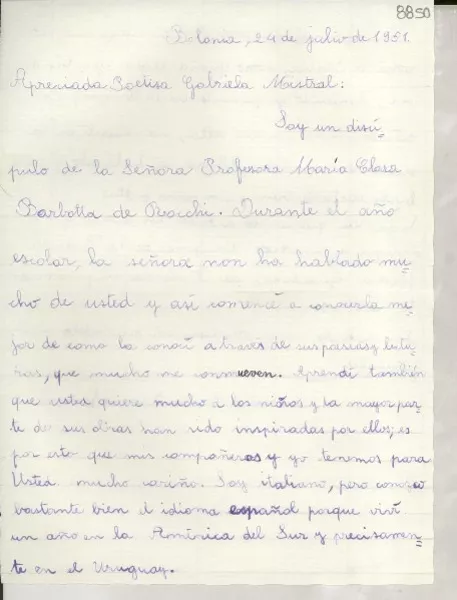 8850
Bolonia, 24 de julio de 1951.
Apreciada Poetisa Gabriela Mistral:
Soy un discí=
pulo de la Señora Profesora María Elosa
Barbotta de Rocchi. Durante el año
escolar, la señora non ha hablado mu=
cho de usted y así comencé a conocerla me=
jor de como la conocí a traves de sus poesias y lectu
ras, que mucho me conmueven. Aprendí también
que usted quiere mucho a los niños y la mayor par=
te de sus obras han sido inspiradas por ellos; es
por esto que mis compañeros y yo tenemos para
Usted mucho cariño. Soy italiano, pero conozco
bastante bien el idioma español porque viví
un año en la América del Sur y precisamen=
te en el Uruguay.